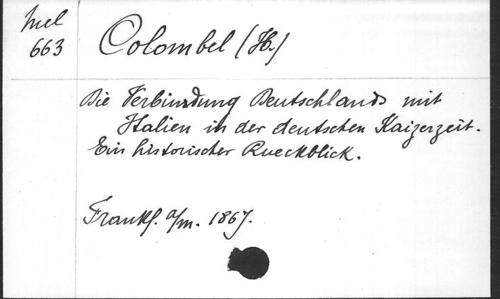 Mel
663
Colombel (H.)
Die Verbindung Deutschlands mit
Italien in der deutschen Kaizerzeit.
Ein historischer Rueckblick.
Frankf. a/m. 1867.